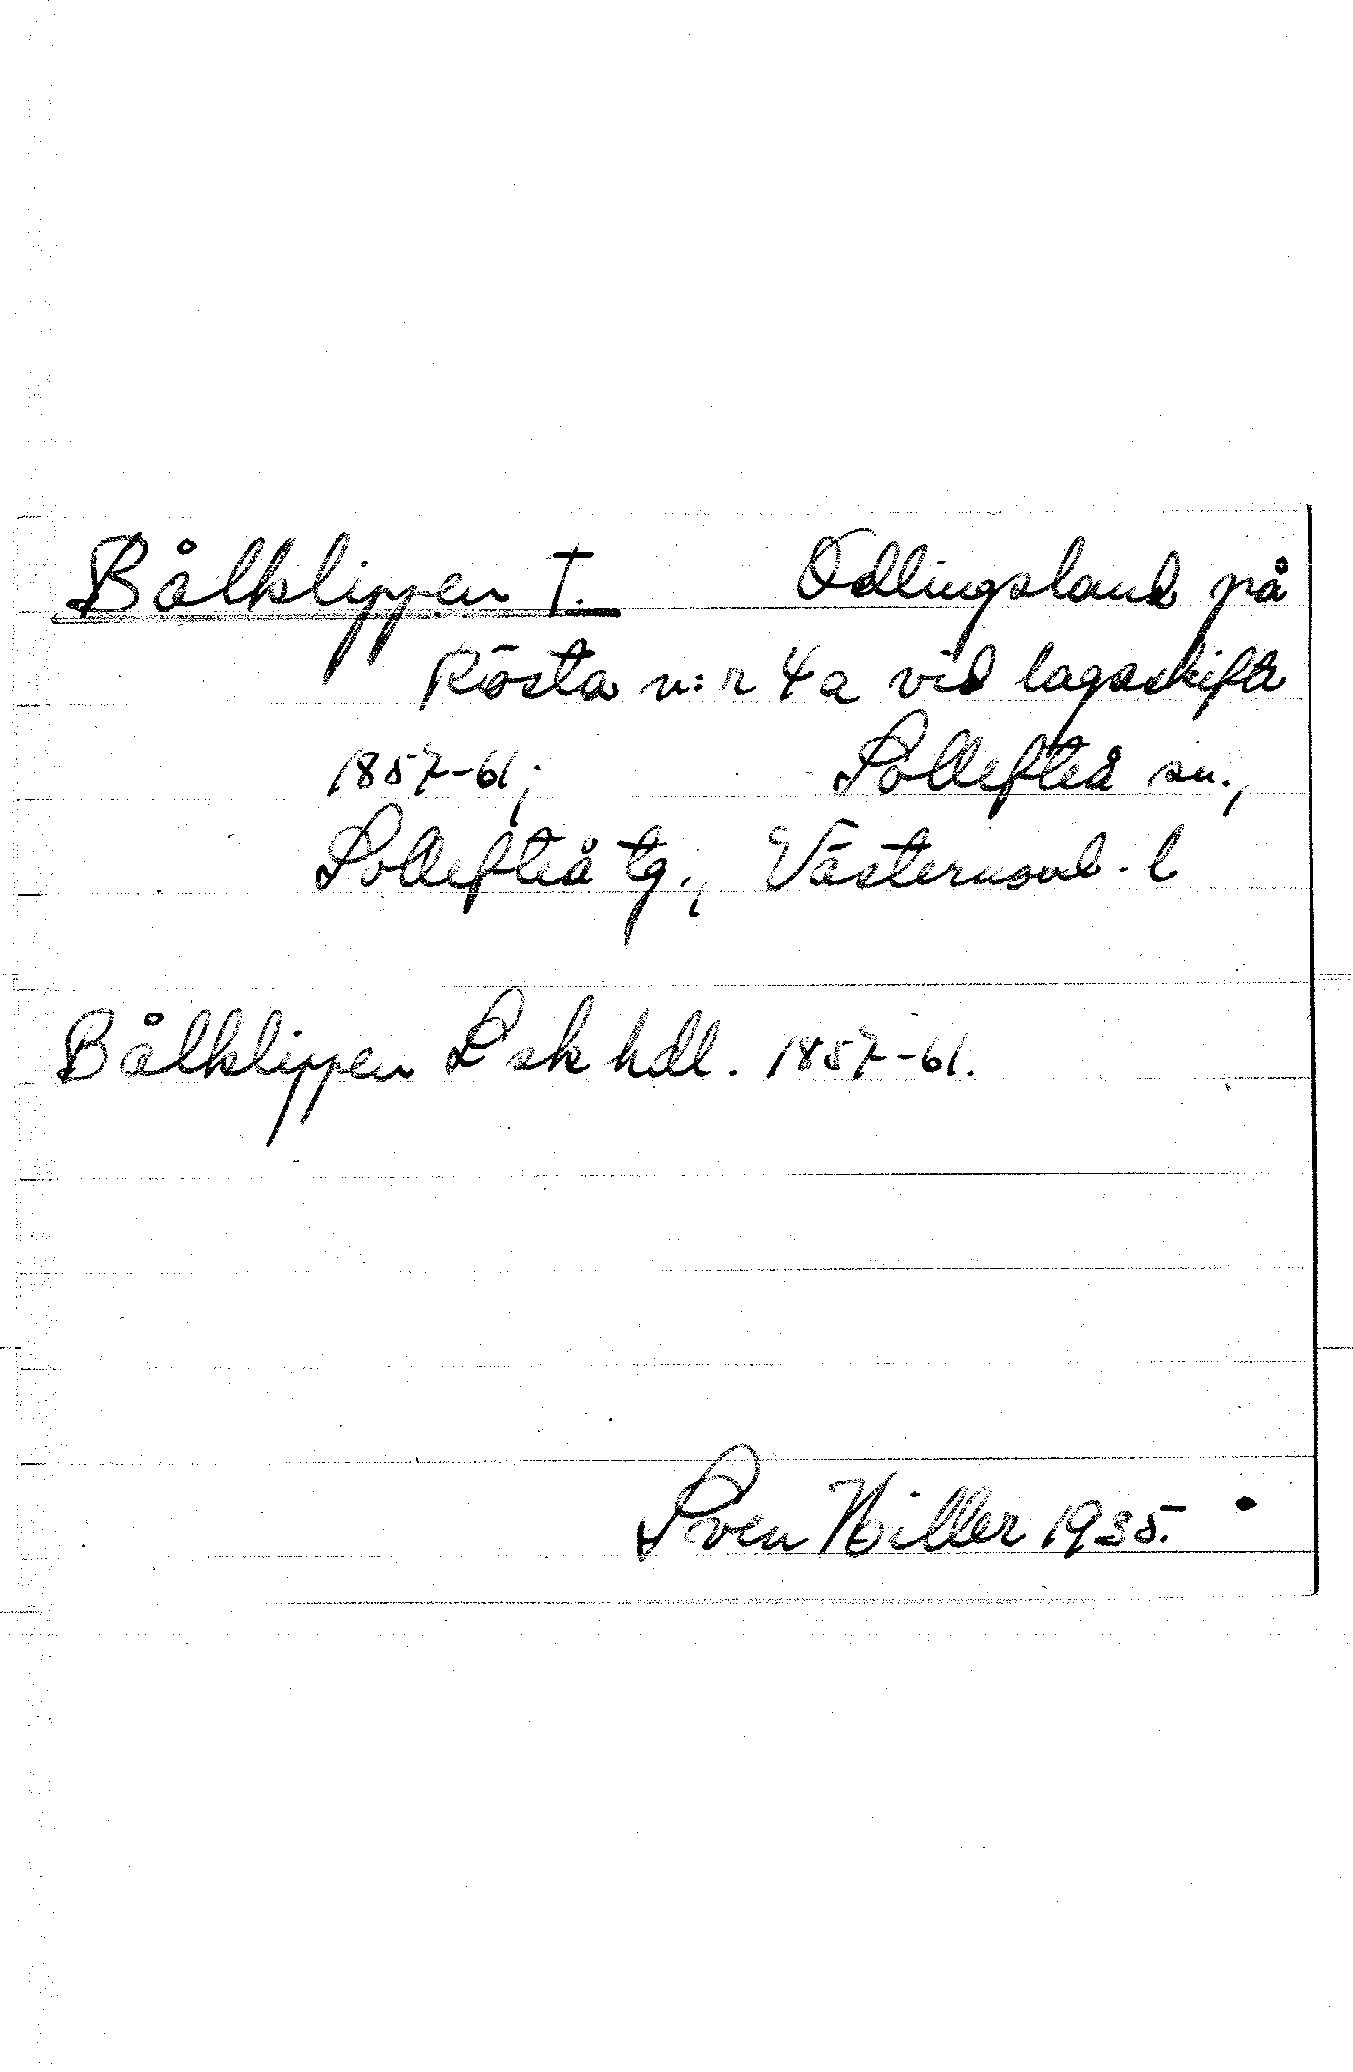 Bålklippen †. Odlingsland på
Rösta n:r 4a vid lagaskifte
1857-61; Sollefteå sn.,
Sollefteå tg., Västernorrl. l
Bålklippen Lsk hdl. 1857-61.
Sven Hiller 1935.